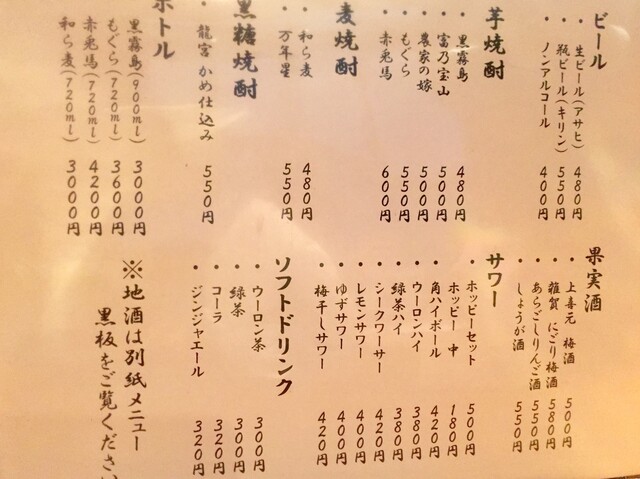 ビール
・生ビール(アサヒ) 480円
・瓶ビール(キリン) 550円
・ノンアルコール 400円
芋焼酎
・黒霧島 480円
・富乃宝山 500円
・農家の嫁 500円
・もぐら 550円
・赤兎馬 600円
麦焼酎
・和ら麦 480円
・万年星 550円
黒糖焼酎
・龍宮 かめ仕込み 550円
ボトル
黒霧島(900ml) 3000円
もぐら(720ml) 3600円
赤兎馬(720ml) 4200円
和ら麦(720ml) 3000円
果実酒
・上喜元 梅酒 500円
・雑賀 にごり梅酒 580円
・あらごしりんご酒 550円
・しょうが酒 550円
サワー
・ホッピーセット 500円
・ホッピー 中 180円
・角ハイボール 420円
・ウーロンハイ 380円
・緑茶ハイ 380円
・シークワーサー 420円
・レモンサワー 400円
・ゆずサワー 400円
・梅干しサワー 420円
ソフトドリンク
・ウーロン茶 300円
・緑茶 300円
・コーラ 320円
・ジンジャエール 320円
※地酒は別紙メニュー
黒板をご覧ください